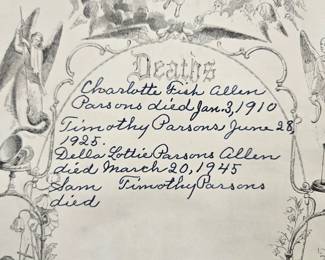 Deaths
Charlotte Fish Allen
Parsons died Jan. 3, 1910
Timothy Parsons June 28,
1925.
Della Lottie Parsons Allen
died March 20, 1945
Sam Timothy Parsons
died